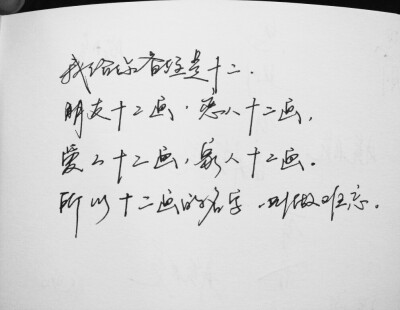 我给你备注是十二.
朋友十二画.恋人十二画,
爱人十二画,家人十二画.
所以十二画的名字.叫做难忘.